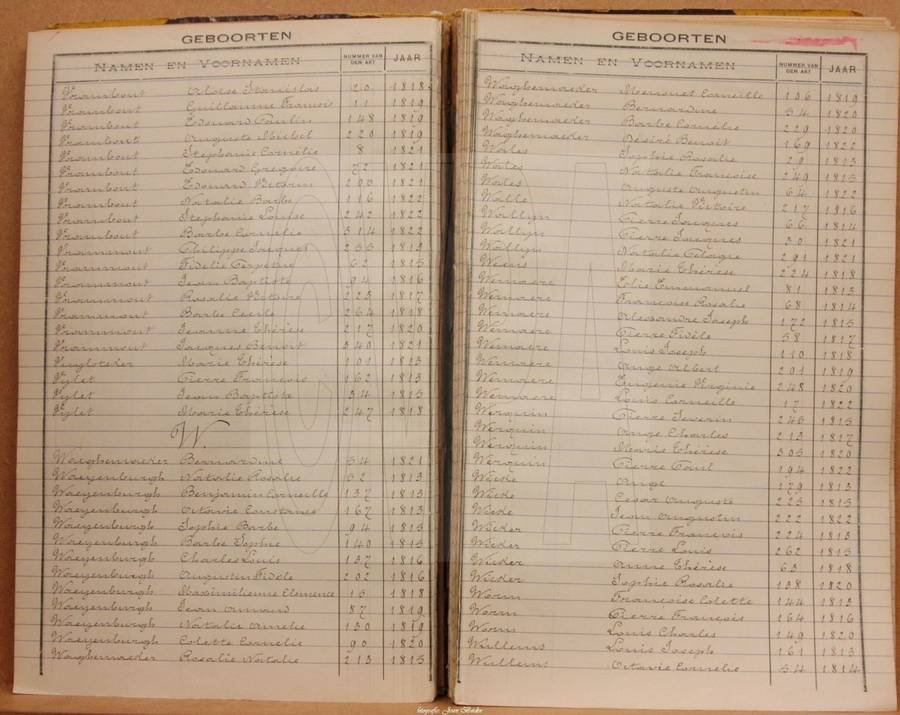 GEBOORTEN
NAMEN EN VOORNAMEN NUMMER VAN DEN AKT JAAR
Vrambout Aloïse Stanislas 20 1818
Vrambout Guillaume François 11 1819
Vrambout Edouard Paulin 148 1819
Vrambout Auguste Michel 220 1819
Vrambout Stephanie Cornélie 8 1821
Vrambout Edouard Gregoire 72 1821
Vrambout Edouard 290 1821
Vrambout Natalie Barbe 116 1822
Vrambout Stephanie Louise 242 1822
Vrambout Barbe Cornélie 314 1822
Vrammout Philippe Jacques 255 1813
Vrammout Fidelie Perpetue 62 1815
Vrammout Jean Baptiste 94 1816
Vrammout Rosalie Victoire 223 1817
Vrammout Barbe Cecile 264 1818
Vrammout Jeanne Thérèse 217 1820
Vrammout Jacques Benoit 340 1821
Marie Thérèse 101 1813
Vylet Pierre François 162 1813
Vylet Jean Baptiste 34 1815
Vylet Marie Thérèse 247 1818
W.
Waeghemaeker Bernardine 54 1821
Waeyenburgh Natalie Rosalie 52 1813
Waeyenburgh Benjamin Corneille 137 1813
Waeyenburgh Octavie Constance 167 1813
Waeyenburgh Sophie Barbe 94 1815
Waeyenburgh Barbe Sophie 140 1815
Waeyenburgh Charles Louis 137 1816
Waeyenburgh Augustin Fidèle 202 1816
Waeyenburgh Maximilienne Clemence 15 1818
Waeyenburgh Jean Armand 87 1819
Waeyenburgh Natalie Amelie 130 1819
Waeyenburgh Colette Cornélie 90 1820
Waeghemaeker Rosalie Natalie 213 1815
GEBOORTEN
NAMEN EN VOORNAMEN NUMMER VAN DEN AKT JAAR
Waeghemaeker Corneille 106 1819
Waeghemaeker Bernardine 34 1820
Waeghemaeker Barbe Cornélie 229 1820
Waeghemaeker Désiré Benoit 169 1822
Wales Sophie Rosalie 29 1813
Wales Natalie Françoise 249 1815
Wales Auguste Augustin 64 1822
Walle Natalie Victoire 217 1816
Wallyn Pierre Jacques 66 1814
Wallyn Pierre Jacques 30 1821
Wallyn Natalie 291 1821
Weens Marie Thérèse 224 1818
Wemaere Elie Emmanuel 81 1813
Wemaere Françoise Rosalie 68 1814
Wemaere Alexandre Joseph 172 1815
Wemaere Pierre Fidèle 58 1817
Wemaere Louis Joseph 110 1818
Wemaere Ange Albert 201 1819
Wemaere Eugenie Virginie 248 1820
Wemaere Louis Corneille 17 1822
Werquin Pierre Severin 245 1815
Werquin Ange Charles 213 1817
Werquin Marie Thérèse 305 1820
Werquin Pierre 194 1822
Wicke Ange 179 1813
Wicke Cesar Auguste 225 1815
Wicke Jean Augustin 222 1822
Wicker Pierre François 224 1813
Wicker Pierre Louis 262 1815
Wicker Anne Thérèse 63 1818
Wicker Sophie Rosalie 138 1820
Worm Françoise Colette 144 1813
Worm Pierre François 164 1816
Worm Louis Charles 149 1820
Wullems Louis Joseph 161 1813
Wullems Octavie Cornelie 34 1814